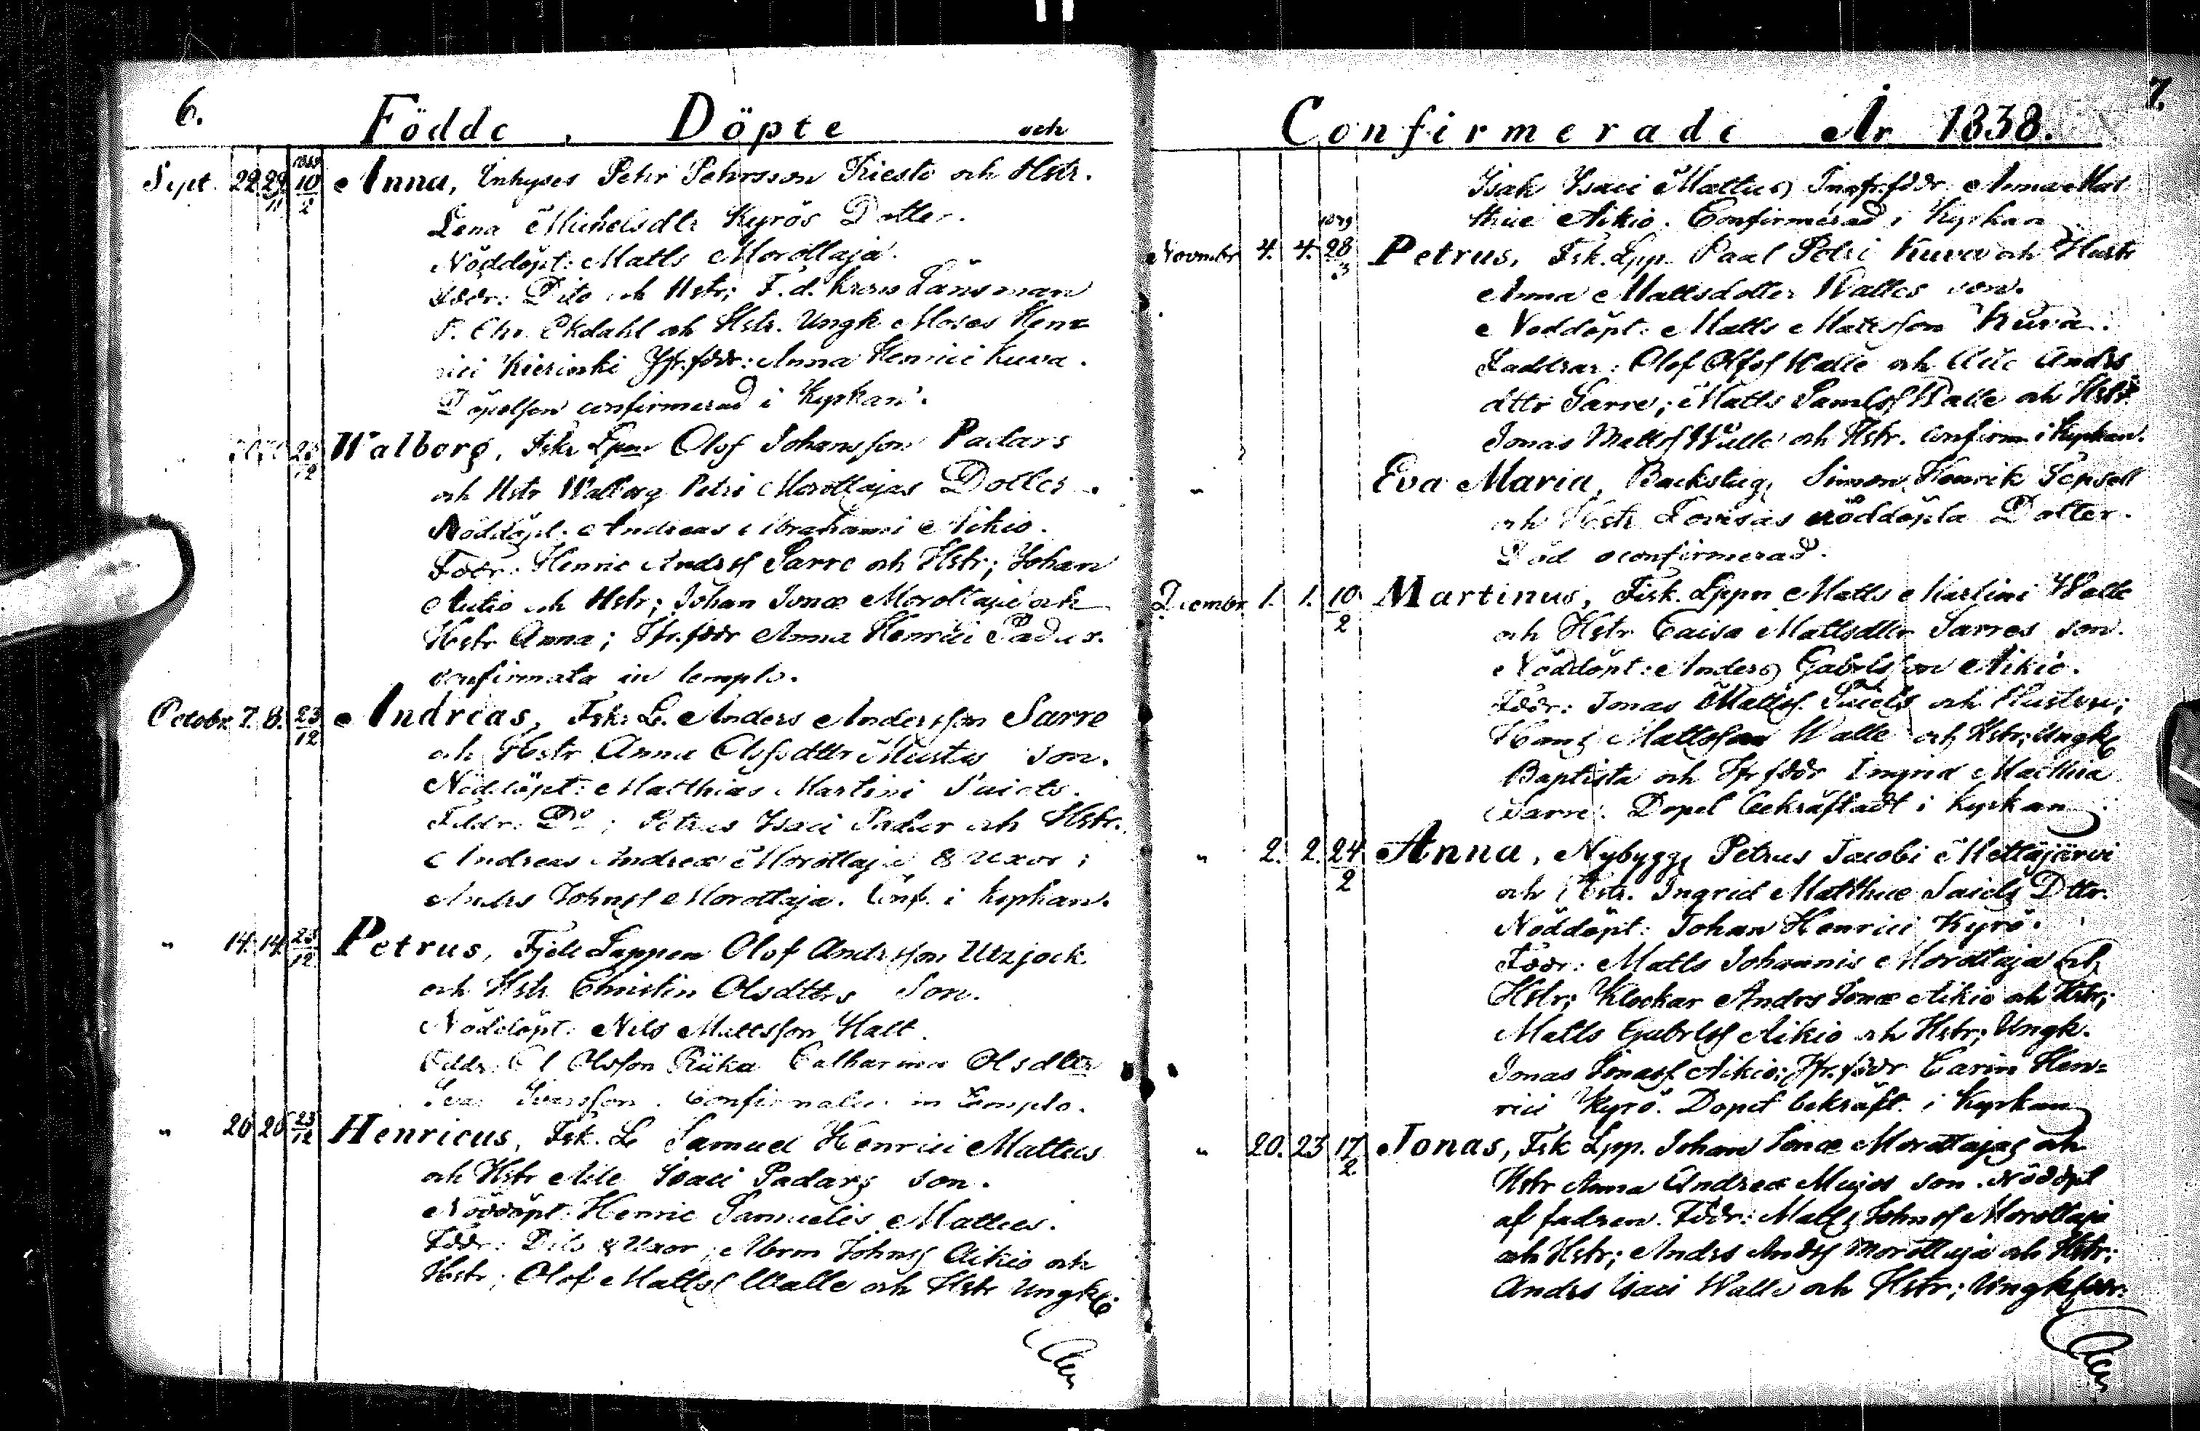 6.
Födde, Döpte och
Sept. 22 29 10/2 Anna, Inhyses Pehr Pehrsson Kiesto och Hstr.
Lena Michelsdtr Kyrös Dotter.
Nöddöpt: Matts Morottaja.
Fddr: Dito och Hstr; F. d. Krono Länsman
Ekdahl och Hstr. Ungk Moses Hen=
rici Kierinki Jfr. fddr: Anna Henrici Kuva.
Döpelsen confirmerad i Kyrkan.
Walborg, Fsk Lpn Olof Johansson Padars
och Hstr Walborg Petri Morottajas Dotter.
Nöddöpt: Andreas Abrahami Aikio.
Fddr: Henric Andrss Sarre och Hstr; Johan
Autio och Hstr; Johan Jonæ Morottaja och
Hstr Anna; Jfr. fddr Anna Henrici Padar.
confirmata in templo.
Octobr. 7. 8. 23/12 Andreas, Fsk. L. Anders Andersson Sarre
och Hstr Anna Olofsdttr Mustas Son.
Nöddöpt: Matthias Martini Saiets.
Fddr: Do; Petrus Isaci Padar och Hstr.
Andreas Andreæ Morottaja & Uxor;
Andrs Johnss Morottaja. Conf. i kyrkan.
" 14. 14. 23/12 Petrus, Fjell Lappen Olof Andrsson Utsjock
och Hstr Christin Olsdttrs Son.
Nöddöpt: Nils Mattsson Halt.
Fddr: Ol Olsson Riika Catharina Olsdtter
Confirmatus in Templo.
" 26 26 23/12 Henricus, Fsk. L. Samuel Henrici Mattus
och Hstr Aile Isaci Padars Son.
Nöddöpt: Henric Samuelis Mattus.
Fddr: Dito & Uxor; Abrm Johnss Aikio och
Hstr; Olof Mattss Walle och Hstr Ungk
7.
Confirmerade År 1838.
Isak Isaci Mattus, Jngfr. fddr. Anna Mat
thiæ Aikio. Confirmerad i Kyrkan
November 4. 4. 28/3 Petrus, Fsk. Lpp. Paal Petri Kuva och Hustr
Anna Mattsdotter Walles son.
Nöddöpt: Matts Matsson Kuva.
Faddrar: Olof Olofss Walle och Aile Andrs
dttr Sarre; Matts Samlss Walle och Hstr
Jonas Mattss Walle och Hstr. Confirm. i Kyrkan.
" Eva Maria, Backstug. Simon Henrik
och Hstr Lovisas nöddöpta Dotter.
Död oconfirmerad.
Decembr. 1. 1. 10/2 Martinus, Fisk. Lppn Matts Martini Walle
och Hstr Caisa Mattsdttr Sarres son.
Nöddöpt: Anders Gabrlsson Aikio.
Fddr: Jonas Mattss Saiets och Hustru;
Hans Mattsson Walle och Hstr; Ungk
Baptista och Jfr fddr Ingrid Mathiæ
Sarre. Dopet bekräftadt i kyrkan
" 2. 2. 24/2 Anna, Nybygg. Petrus Jacobi Mellajärvi
och Hstr. Ingrid Matthiæ Saiets Dttr.
Nöddöpt: Johan Henrici Kyrö.
Fddr: Matts Johannis Morottaja och
Hstr; Klockar Andrs Jonæ Aikio och Hstr;
Matts Gabrlss Aikio och Hstr; Ungk.
Jonas Jonass Aikio; Jfr. fddr Carin Hen=
rici Kyrö. Dopet bekräft. i Kyrkan
" 20. 23 17/2 Jonas, Fsk Lpp. Johan Jonæ Morottajas och
Hstr Anna Andreæ Mujos son. Nöddöpt
af fadren. Fddr: Matts Johnss Morottaja
och Hstr; Andrs Andrss Morottaja och Hstr;
Andrs Isaci Walle och Hstr; Ungk. fddr: